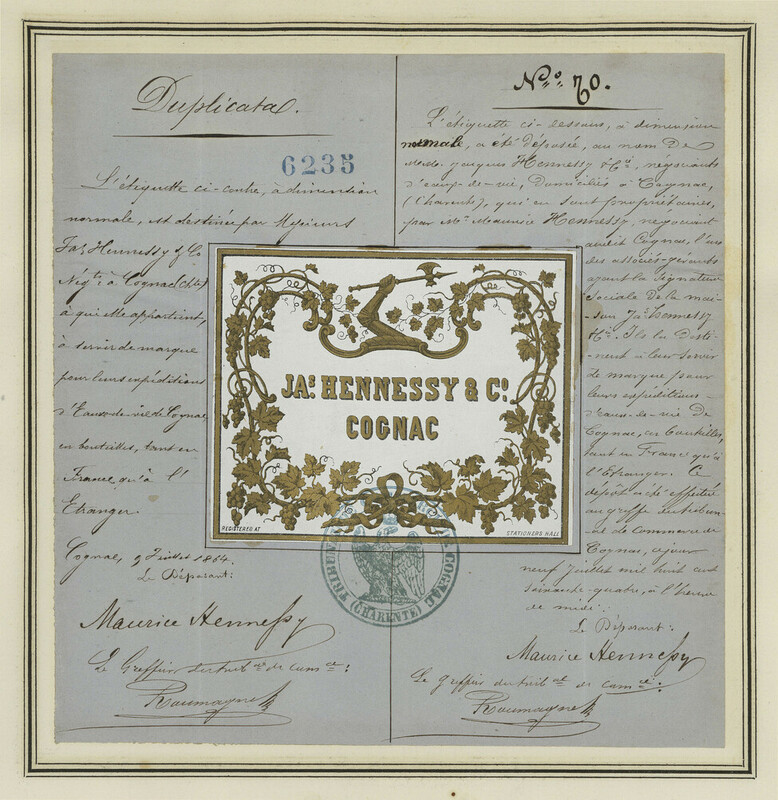 Duplicata.
6235
L'étiquette ci-contre, à dimention
normale, est destinée par Messieurs
Jas Hennessy & Co
Négts à Cognac (Chte)
à qui elle appartient,
à servir de marque
pour leurs expéditions
d'Eaux-de-vie de Cognac,
en bouteilles, tant en
France qu'à l'
Etranger.
Cognac, 9 Juillet 1864.
Le Déposant:
Maurice Hennessy
Le Greffier du trib al de comce:
Roumagne
No. 70.
L'étiquette ci-dessous, à dimension
normale, a été déposée, au nom de
M.M. Jacques Hennessy & Cie, négociants
d'eaux-de-vie, domiciliés à Cognac,
(Charente), qui en sont propriétaires,
par Mr Maurice Hennessy, négociant
audit Cognac, l'un
des associés-gérants
ayant la signature
sociale de la mai-
son Jas Hennessy
& Cie. Ils la desti-
nent à leur servir
de marque pour
leurs expéditions
d'Eaux-de-vie de
Cognac, en bouteilles,
tant en France qu'à
l'Etranger. Ce
dépôt a été effectué
au greffe du tribun-
al de Commerce de
Cognac, ce jour
neuf Juillet mil huit cent
soixante-quatre, à l'heure
de midi.
Le Déposant:
Maurice Hennessy
Le greffier du trib al de comce:
Roumagne
JAS HENNESSY & CO
COGNAC
REGISTERED AT
STATIONERS HALL
TRIBUNAL COGNAC
(CHARENTE)